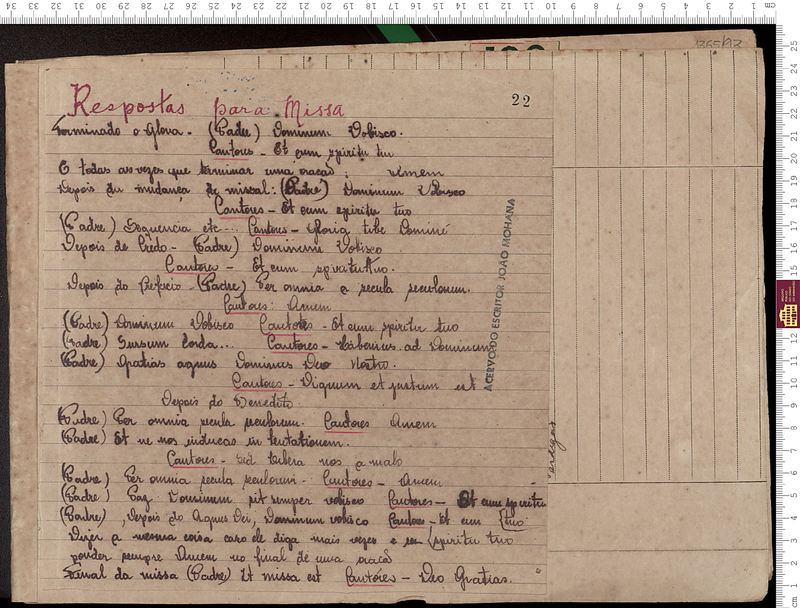 1365/93
22
Respostas para Missa
Terminado o Gloria - (Padre) Dominum Vobisco.
Cantores - Et cum spiritu tuo
E todas as vezes que terminar uma oração: Amem
Depois da mudança do missal: (Padre) Dominum Vobisco
Cantores - Et cum spiritu tuo
(Padre) Sequencia etc... Cantores - Gloria tibe Dominé
Depois do Credo - (Padre) Dominum Vobisco
Cantores - Et cum spiritu tuo.
Depois do Prefacio - (Padre) Per omnia a secula seculorum.
Cantores: Amem
(Padre) Dominum Vobisco Cantores - Et cum spiritu tuo
(Padre) Sursum Corda... Cantores - Habemus ad Dominum
(Padre) Gratias agnus Dominus Deo Nostro.
Cantores - Dignum et justum est
Depois do Benedito.
(Padre) Per omnia secula seculorum. Cantores Amem
(Padre) Et ne nos inducas in tentationem.
Cantores - Sed libera nos a malo
(Padre) Per omnia secula seculorum. Cantores - Amem
(Padre) Paz Dominum sit semper vobisco Cantores - Et cum spiritu
(Padre), Depois do Agnus Dei, Dominum vobisco Cantores - Et cum {tuo
Dizer a mesma coisa caso ele diga mais vezes e {spiritu tuo
ponder sempre Amem no final de uma oração
Final da missa (Padre) It missa est Cantores - Deo Gratias.
ACERVO DO ESCRITOR JOÃO MOHANA